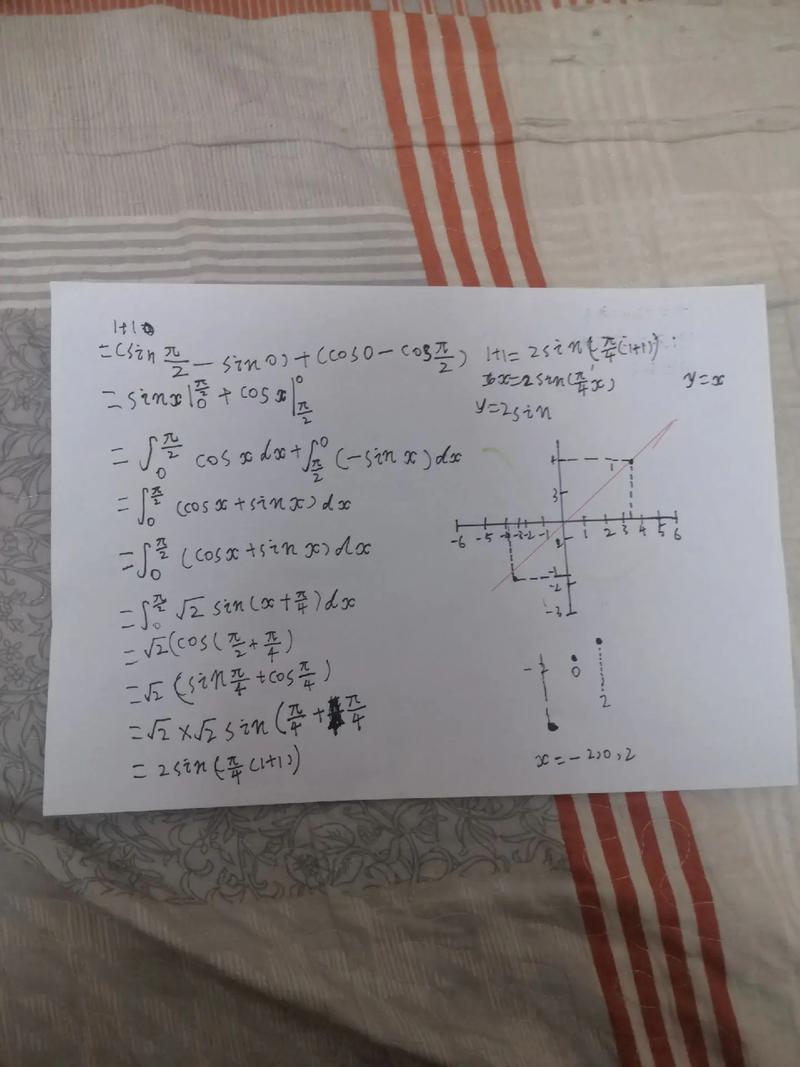 1+1
=(sin π/2 − sin 0) + (cos 0 − cos π/2)
= sin x |₀^{π/2} + cos x |_{π/2}^0
= ∫₀^{π/2} cos x dx + ∫_{π/2}^0 (−sin x) dx
= ∫₀^{π/2} (cos x + sin x) dx
= ∫₀^{π/2} (cos x + sin x) dx
= ∫₀^{π/2} √2 sin(x + π/4) dx
= √2 (cos(π/2 + π/4)
= √2 (sin π/4 + cos π/4)
= √2 × √2 sin (π/4 + π/4
= 2 sin (π/4 (1+1)
1+1 = 2 sin (π/4 (1+1))
x = 2 sin(π/4 x)
y = x
y = 2 sin
3
1
-6 -5 -4 -3 -2 -1 1 2 3 4 5 6
-1
-2
-3
0
2
x = −2, 0, 2